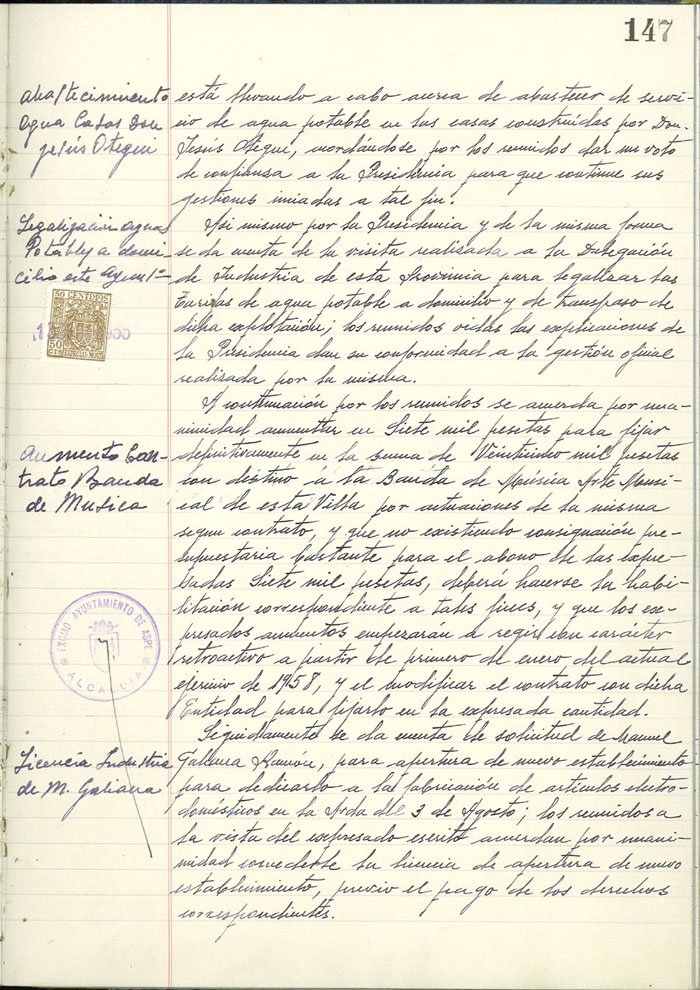 147
Abastecimiento
agua Casas Don
Jesús Otegui
está llevando a cabo acerca de abastecer de servi-
cio de agua potable en las casas construidas por Don.
Jesús Otegui, acordándose por los reunidos dar un voto
de confianza a la Presidencia para que continue sus
gestiones iniciadas a tal fin.
Legalización aguas
Potables a domi-
cilio este Aymtº
50 CENTIMOS
50
CTS
ESPECIAL MOVIL
Asi mismo por la Presidencia y de la misma forma
se da cuenta de la visita realizada a la Delegación
de Industria de esta Provincia para legalizar las
tarifas de agua potable a domicilio y de transpaso de
dicha explotación; los reunidos oidas las explicaciones de
la Presidencia dan su conformidad a la gestión oficial
realizada por la misma.
Aumento Con-
trato Banda
de Musica
A continuación por los reunidos se acuerda por una-
nimidad aumentar en Siete mil pesetas para fijar
definitivamente en la suma de Veintiuno mil pesetas
con destino a la Banda de Música Arte Musi-
cal de esta Villa por actuaciones de la misma
segun contrato, y que no existiendo consignación pre-
supuestaria bastante para el abono de las expre-
sadas Siete mil pesetas, debera hacerse la habi-
litación correspondiente a tales fines, y que los ex-
presados aumentos empezarán a regir con carácter
retroactivo a partir de primero de enero del actual
ejercicio de 1958, y el modificar el contrato con dicha
Entidad para fijarlo en la expresada cantidad.
EXCMO AYUNTAMIENTO DE ASPE
ALCALDIA
Licencia Industria
de M. Galiana
Seguidamente se da cuenta de solicitud de Manuel
Galiana Ramón, para apertura de nuevo establecimiento
para dedicarlo a la fabricación de articulos electro-
domésticos en la Avda del 3 de Agosto; los reunidos a
la vista del expresado escrito acuerdan por unani-
midad concederle la licencia de apertura de nuevo
establecimiento, previo el pago de los derechos
correspondientes.